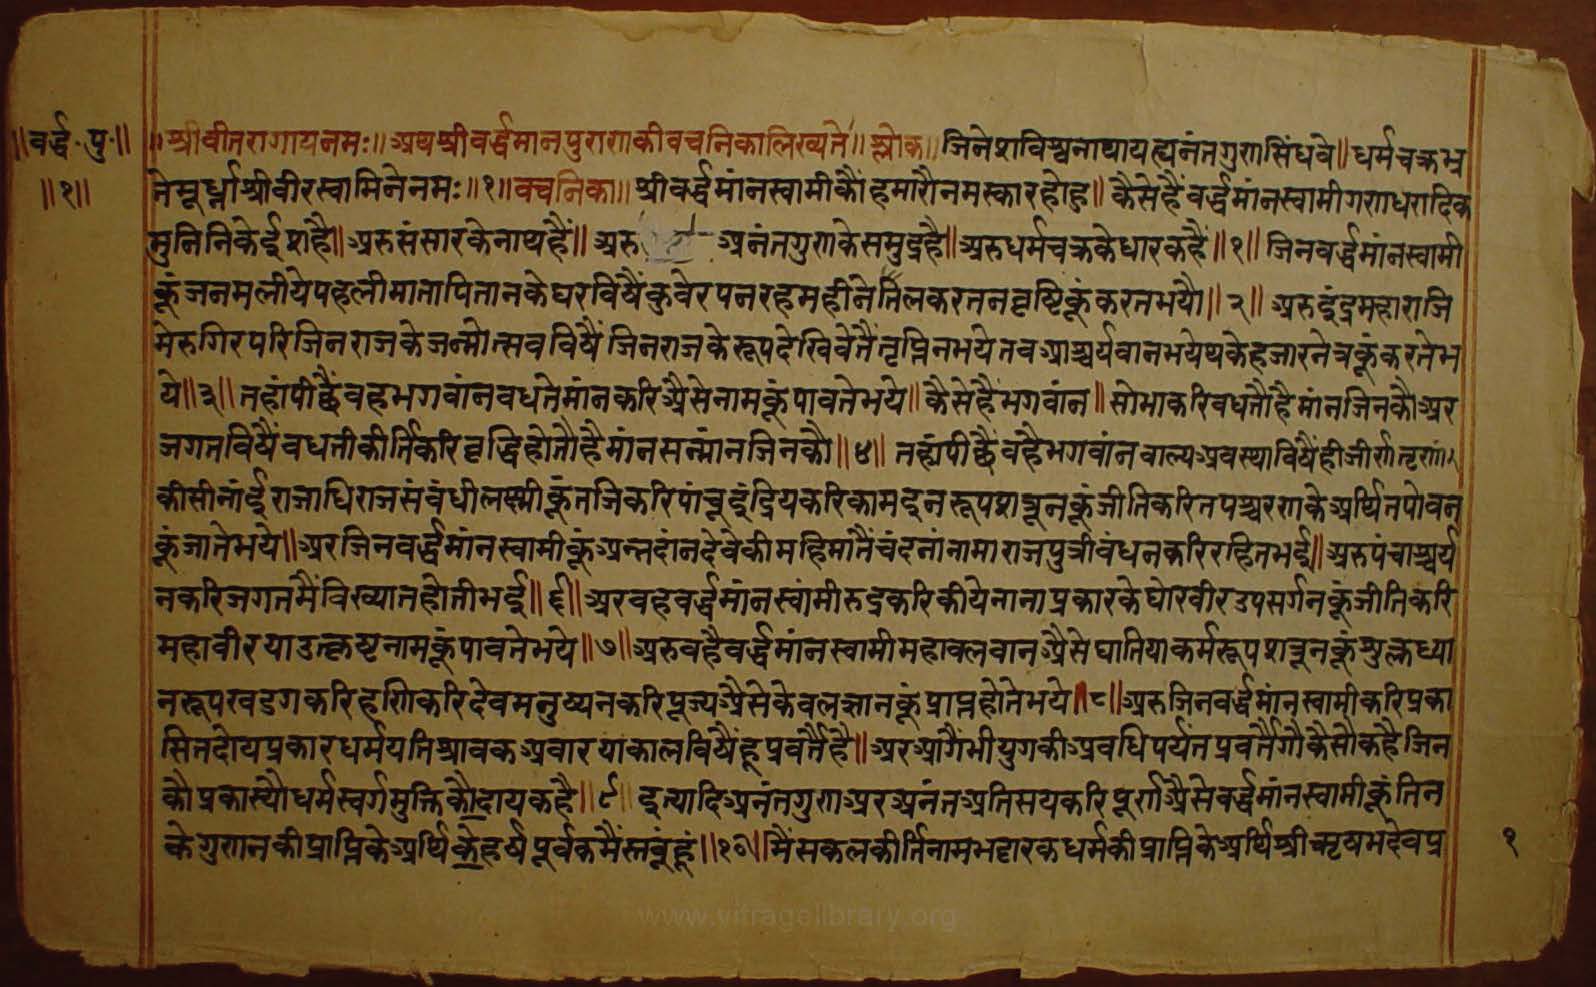 ॥वर्द्ध॰पु॰॥
॥१॥
॥श्रीवीतरागायनमः॥अथश्रीवर्द्धमानपुराणकीवचनिकालिख्यते॥श्लोक॥जिनेशविश्वनाथायह्यनंतगुणसिंधवे॥धर्मचक्रभृ
तेमूर्ध्नाश्रीवीरस्वामिनेनमः॥१॥वचनिका॥श्रीवर्द्धमांनस्वामीकौंहमारौनमस्कारहोहु॥कैसेहैंवर्द्धमांनस्वामीगणधरादिक
मुनिनिकेईशहै॥अरुसंसारकेनाथहैं॥अरु अनंतगुणकेसमुद्रहै॥अरुधर्मचक्रकेधारकहैं॥१॥जिनवर्द्धमांनस्वामी
कूंजनमलीयेपहलीमातापितानकेघरविषैंकुवेरपनरहमहीनेतिलकरतनवृष्टिकूंकरतभयौ॥२॥अरुइंद्रमहाराजि
मेरुगिरपरिजिनराजकेजन्मोत्सवविषैंजिनराजकेरूपदेखिवेतैंतृप्तिनभयेतवआश्चर्यवानभयेथकेहजारनेत्रकूंकरतेभ
ये॥३॥तहांपीछैंवहभगवांनवधतेमांनकरिअैसेनामकूंपावतेभये॥कैसेहैंभगवांन॥सोभाकरिवधतौहैमांनजिनकौअर
जगतविषैंवधतीकीर्तिकरिवृद्धिहोतौहैमांनसन्मांनजिनकौ॥४॥तहांपीछैंवहैभगवांनवाल्यअवस्थाविषैंहीजीर्णतृण॥
कीसीनांईराजाधिराजसंबंधीलक्ष्मीकूंतजिकरिपांचूइंद्रियकरिकामदनरूपशत्रूनकूंजीतिकरितपश्चरणकेअर्थितपोवन
कूंजातेभये॥अरजिनवर्द्धमांनस्वामीकूंअन्नदांनदेवेकीमहिमातैंचंदनांनामाराजपुत्रीवंधनकरिरहितभई॥अरुपंचाश्चर्य
नकरिजगतमैंविख्यातहोतीभई॥६॥अरवहवर्द्धमांनस्वांमीरुद्रकरिकीयेनानाप्रकारकेघोरवीरउपसर्गनकूंजीतिकरि
महावीरयाउत्कृष्टनामकूंपावतेभये॥७॥अरुवहैवर्द्धमांनस्वामीमहाबलवानअैसेघातियाकर्मरूपशत्रूनकूंशुक्लध्या
नरूपखडगकरिहणिकरिदेवमनुष्यनकरिपूज्यअैसेकेवलज्ञानकूंप्राप्तहोतेभये॥८॥अरुजिनवर्द्धमांनस्वामीकरिप्रका
सितदोयप्रकारधर्मयतिश्रावकअवारयाकालविषैंहूप्रवर्तैहै॥अरआगैंभीयुगकीअवधिपर्यंतप्रवर्तैगौकैसौकहैजिन
कौप्रकास्यौधर्मस्वर्गमुक्तिकौदायकहै॥९॥इत्यादिअनंतगुणअरअनंतअतिसयकरिपूर्णअैसेवर्द्धमांनस्वामीकूंतिन
केगुणनकीप्राप्तिकेअर्थिकेहर्षपूर्वकमैंस्तवूंहूं॥१०॥मैंसकलकीर्तिनामभट्टारकधर्मकीप्राप्तिकेअर्थिश्रीऋषभदेवप्र
१
www.vitragelibrary.org